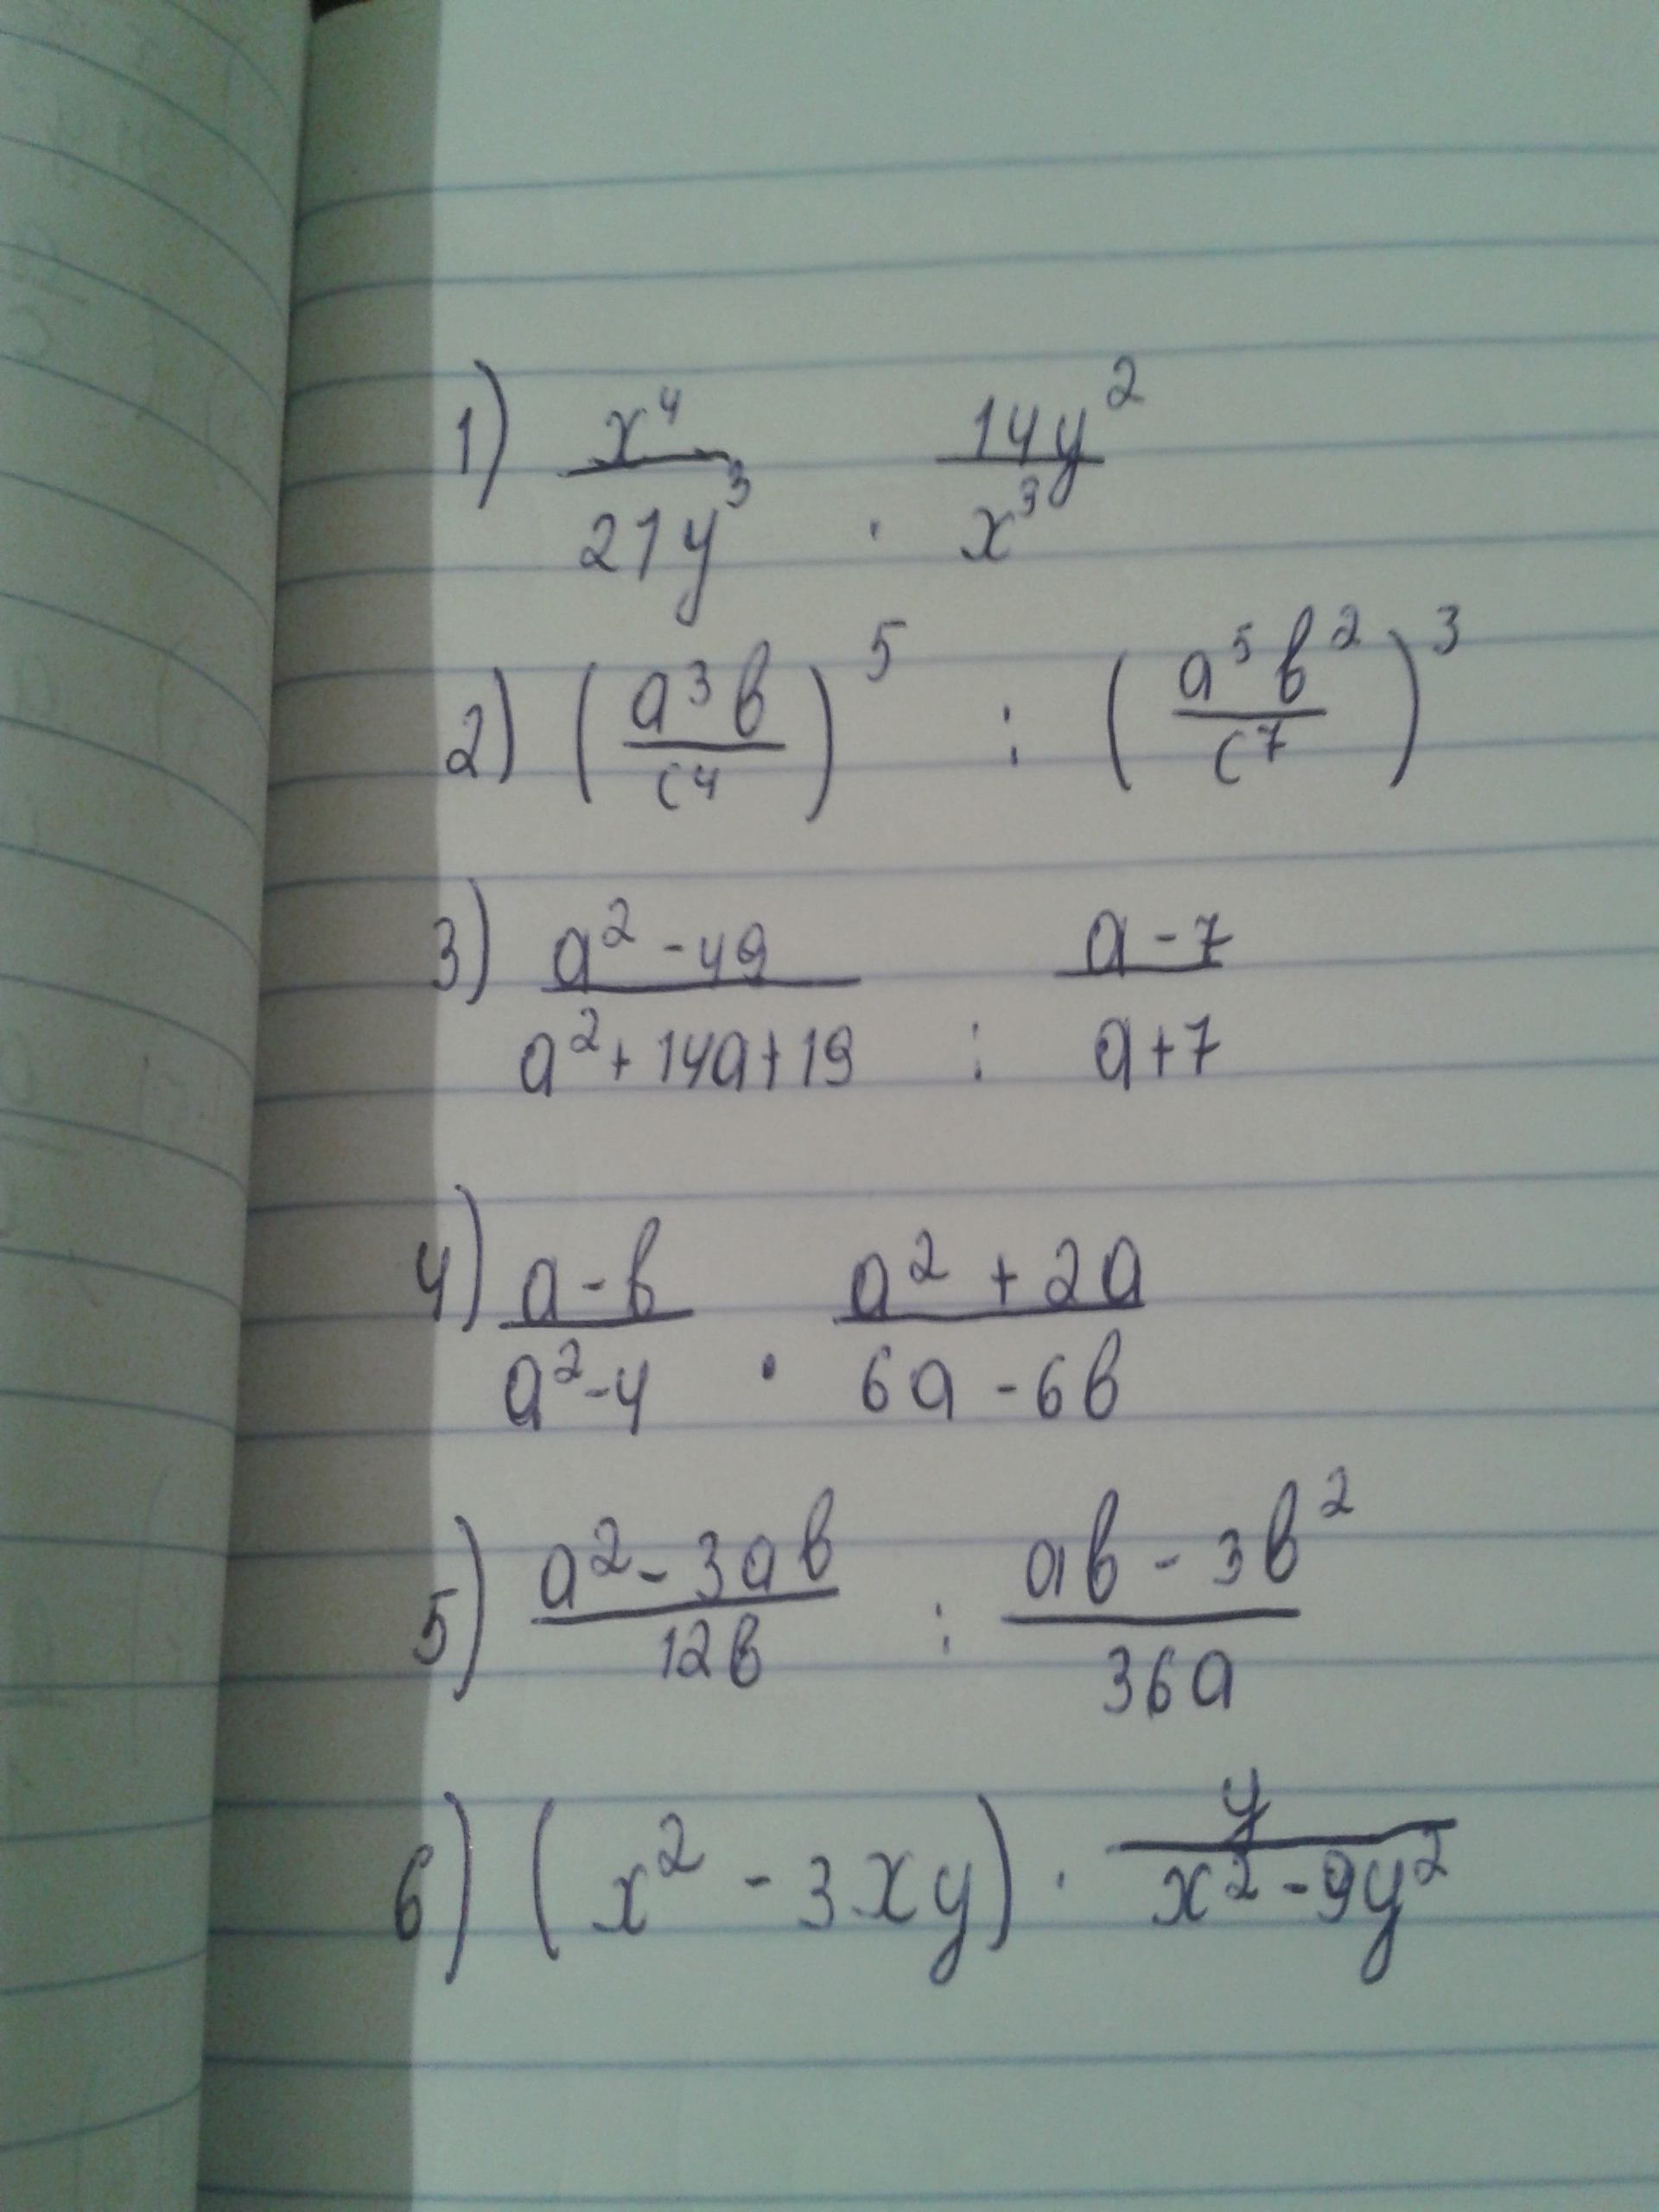 1) x⁴/21y³ · 14y²/x³
2) (a³b/c⁴)⁵ : (a⁵b²/c⁷)³
3) a²-49/a²+14a+19 : a-7/a+7
4) a-b/a²-4 · a²+2a/6a-6b
5) a²-3ab/12b : ab-3b²/36a
6) (x²-3xy) · y/x²-9y²